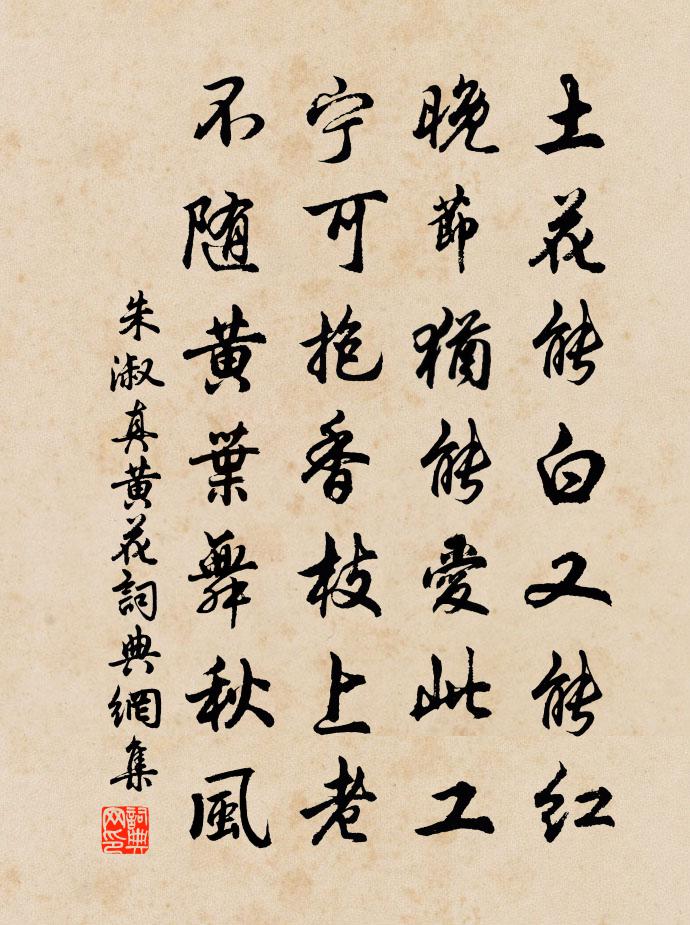 土花能白又能红
晚節猶能愛此工
宁可抱香枝上老
不随黄葉舞秋風
朱淑真黄花詞典網集
詞典网印